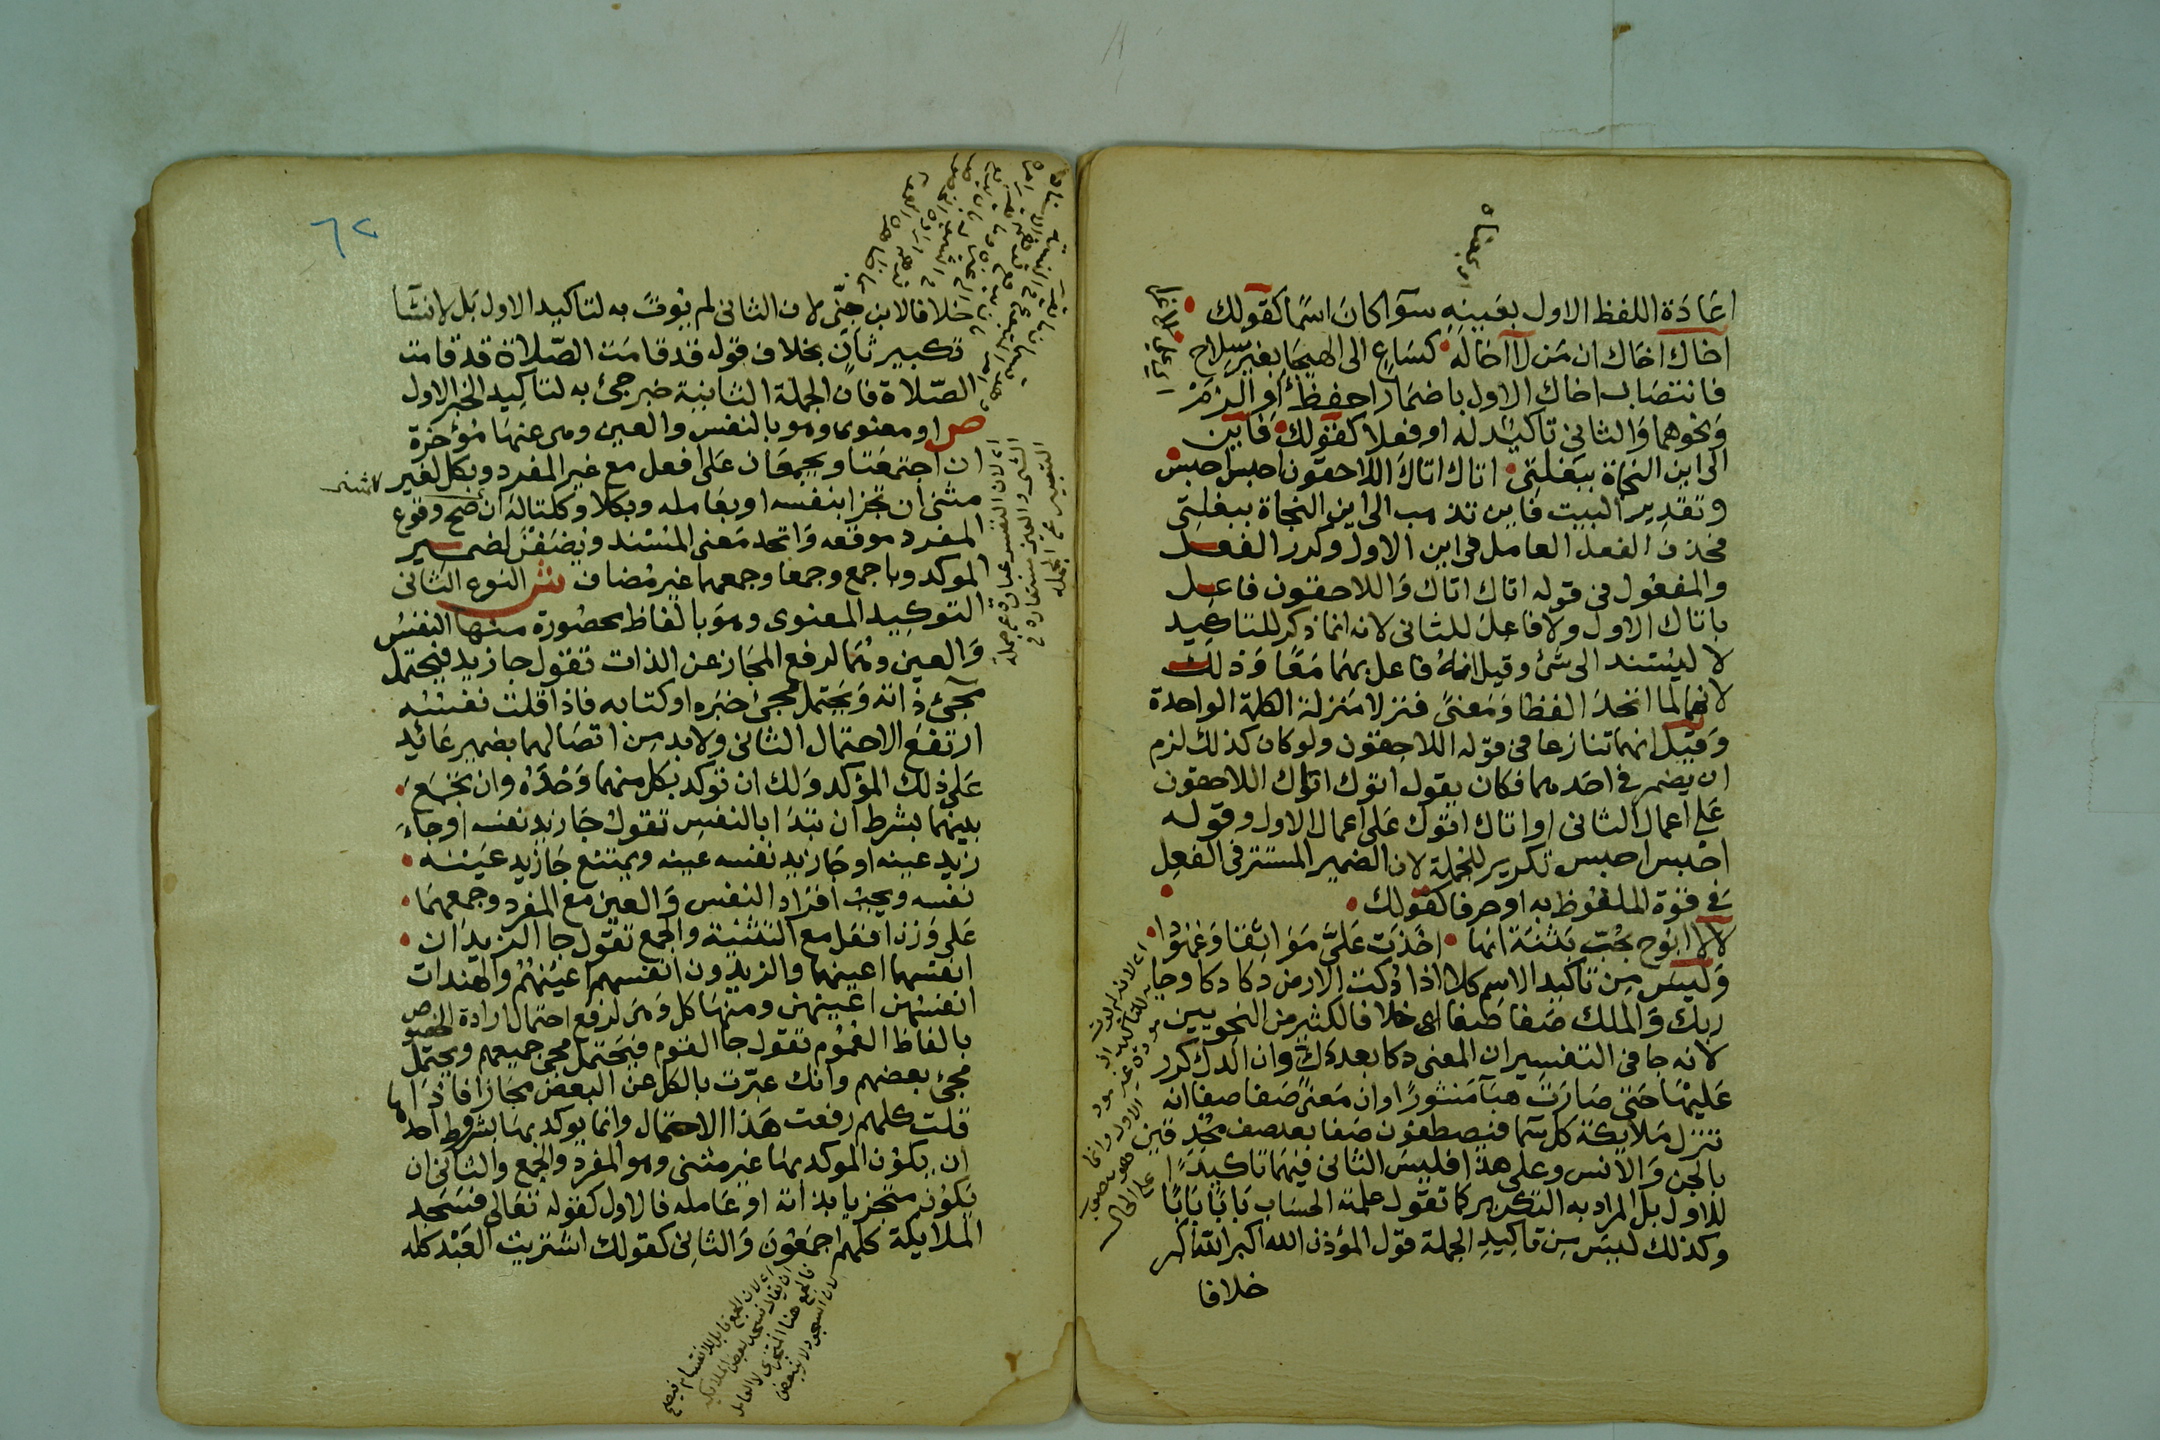 اعادة اللفظ الاول بعينه سوآ كان اسما كقولك
اخاك اخاك ان من لا اخا له كساع الى الهيجا بغير سلاح
فانتصاب اخاك الاول باضمار احفظ او الزم
ونحوهما والثانى تاكيد له او فعلا كقولك فاين
الى اين النجاة ببغلتى اتاك اتاك اللاحقون احبس احبس
وتقدير البيت فاين تذهب الى اين النجاة ببغلتى
فحذف الفعل العامل فى اين الاول وكرر الفعل
والمفعول فى قوله اتاك اتاك واللاحقون فاعل
باتاك الاول ولا فاعل للثانى لانه انما ذكر للتاكيد
لا ليسند الى شئ وقيل انه فاعل بهما معا وذلك
لانهما لما اتحدا لفظا ومعنى فنزلا منزلة الكلمة الواحدة
وقيل انهما تنازعا فى قوله اللاحقون ولو كان كذلك لزم
ان يضمر فى احدهما فكان يقول اتوك اتاك اللاحقون
على اعمال الثانى او اتاك اتوك على اعمال الاول وقوله
احبس احبس تكرير للجملة لان الضمير المستتر فى الفعل
فى قوة الملفوظ به او حرفا كقولك
لا لا ابوح بحب بثنة انها اخذت على مواثقا وعهودا
وليس من تاكيد الاسم كلا اذا دكت الارض دكا دكا وجا
ربك والملك صفا صفا خلافا لكثير من النحويين
لانه جا فى التفسير ان المعنى دكا بعد دك وان الدك كرر
عليها حتى صارت هبآ منثورا وان معنى صفا صفا انه
تنزل ملايكة كل سما فيصطفون صفا بعد صف محدقين
بالجن والانس وعلى هذا فليس الثانى فيهما تاكيدا
للاول بل المراد به التكرير كما تقول علمته الحساب بابا بابا
وكذلك ليس من تاكيد الجملة قول المؤذن الله اكبر الله اكبر
خلافا
٦٢
خلافا لابن جنى لان الثانى لم يوت به لتاكيد الاول بل لانشآ
تكبير ثان بخلاف قوله قد قامت الصلاة قد قامت
الصلاة فان الجملة الثانية خبر جئ به لتاكيد الخبر الاول
ص او معنوى وهو بالنفس والعين وهى عنها مؤخرة
ان اجتمعتا ويجمعان على افعل مع غير المفرد وبكل لغير
مثنى ان تجزا بنفسه او بعامله وبكلا وكلتا له ان صح وقوع
المفرد موقعه واتحد معنى المسند ويضفن لضمير
الموكد وباجمع وجمعا وجمعهما غير مضاف ش النوع الثانى
التوكيد المعنوى وهو بالفاظ محصورة منها النفس
والعين وهما لرفع المجاز عن الذات تقول جا زيد فيحتمل
مجئ ذاته ويحتمل مجئ خبره او كتابه فاذا قلت نفسه
ارتفع الاحتمال الثانى ولابد من اتصالهما بضمير عائد
على ذلك المؤكد ولك ان توكد بكل منهما وحده وان تجمع
بينهما بشرط ان تبدا بالنفس تقول جا زيد نفسه او جاء
زيد عينه او جا زيد نفسه عينه ويمتنع جا زيد عينه
نفسه ويجب افراد النفس والعين مع المفرد وجمعهما
على وزن افعل مع التثنية والجمع تقول جا الزيدان
انفسهما اعينهما والزيدون انفسهم اعينهم والهندات
انفسهن اعينهن ومنها كل وهى لرفع احتمال ارادة الخصوص
بالفاظ العموم تقول جا القوم فيحتمل مجئ جميعهم ويحتمل
مجئ بعضهم وانك عبرت بالكل عن البعض مجازا فاذا
قلت كلهم رفعت هذا الاحتمال وانما يوكد بها بشروط احدها
ان يكون الموكد بها غير مثنى وهو المفرد والجمع والثانى ان
يكون متجزيا بذاته او عامله فالاول كقوله تعالى فسجد
الملايكة كلهم اجمعون والثانى كقولك اشتريت العبد كله
اى لان الجمع قابل للانقسام فيصح
ان يقال سجد بعض الملايكة
فالجمع هنا المتجزى لا العامل
لان السجود لا يتبعض